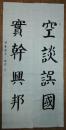 空談誤國
實幹興邦